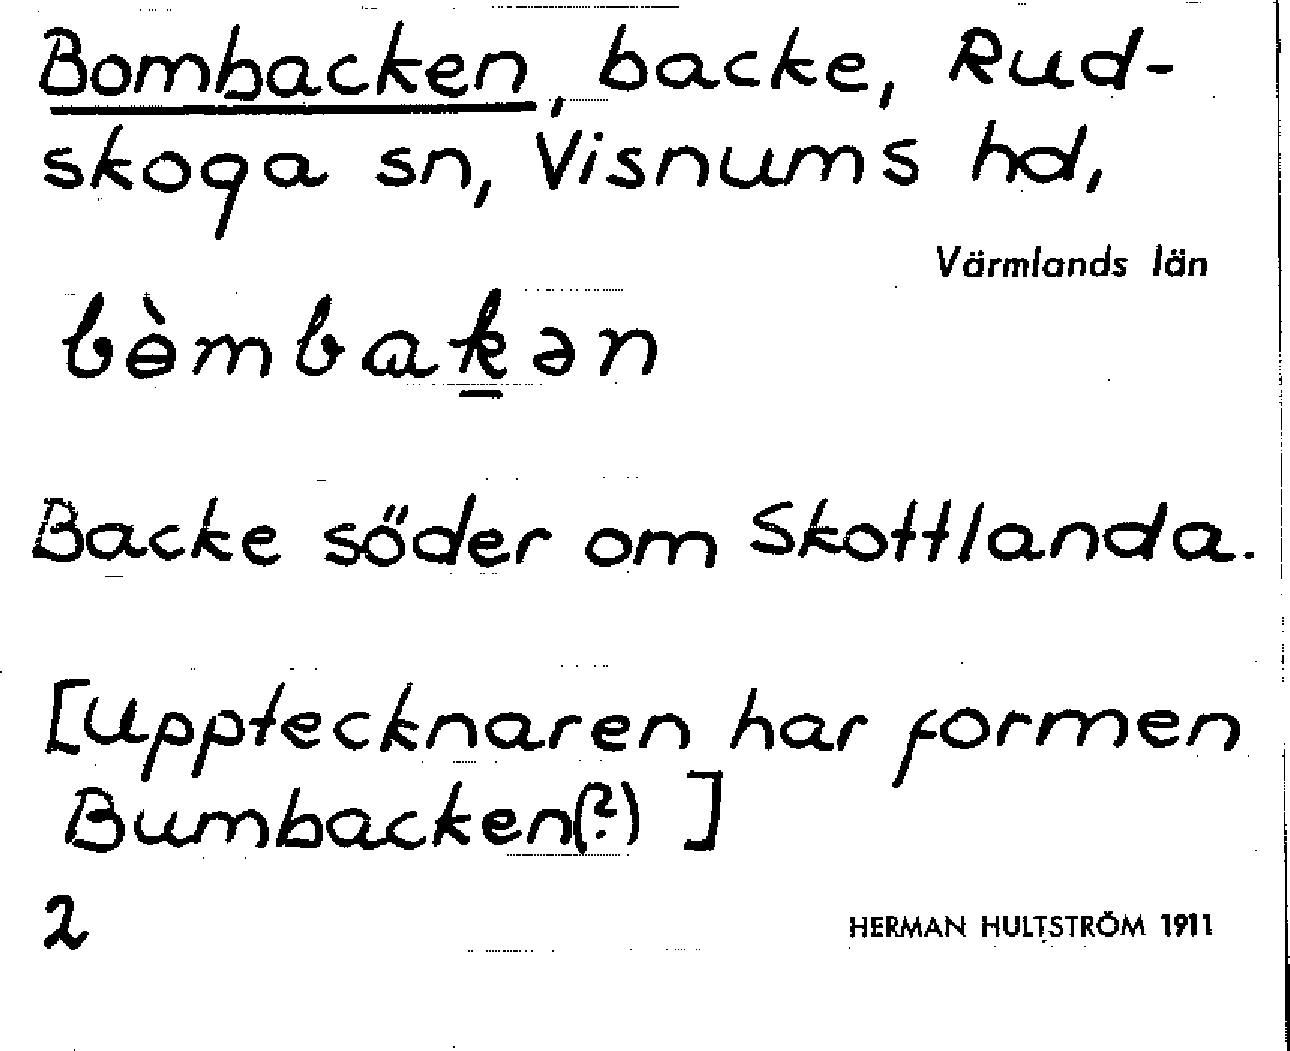 Bombacken, backe, Rud-
skoga sn, Visnums hd,
Värmlands län
bɵ̀mbakən
Backe söder om Skottlanda.
[Upptecknaren har formen
Bumbacken(?) ]
2
HERMAN HULTSTRÖM 1911